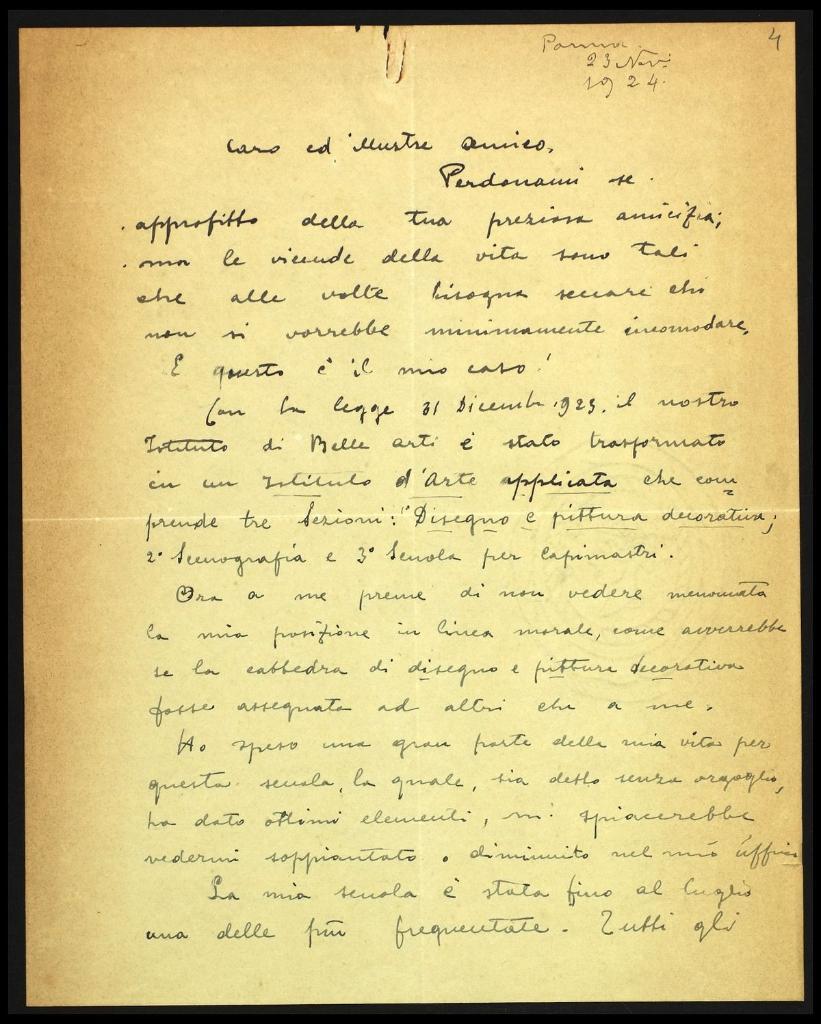 4
Parma
23 Nov:
1924.
Caro ed illustre amico,
Perdonami se
approfitto della tua preziosa amicizia;
ma le vicende della vita sono tali
che alle volte bisogna seccare chi
non si vorrebbe minimamente incomodare.
E questo è il mio caso!
Con la legge 31 Dicembre 1923, il nostro
Istituto di Belle arti è stato trasformato
in un Istituto d'Arte applicata che com=
prende tre Sezioni: 1° Disegno e pittura decorativa;
2° Scenografia e 3° Scuola per Capimastri.
Ora a me preme di non vedere menomata
la mia posizione in linea morale, come avverrebbe
se la cattedra di disegno e pittura decorativa
fosse assegnata ad altri che a me.
Ho speso una gran parte della mia vita per
questa scuola, la quale, sia detto senza orgoglio,
ha dato ottimi elementi, mi spiacerebbe
vedermi soppiantato o diminuito nel mio ufficio
La mia scuola è stata fino al luglio
una delle più frequentate. Tutti gli